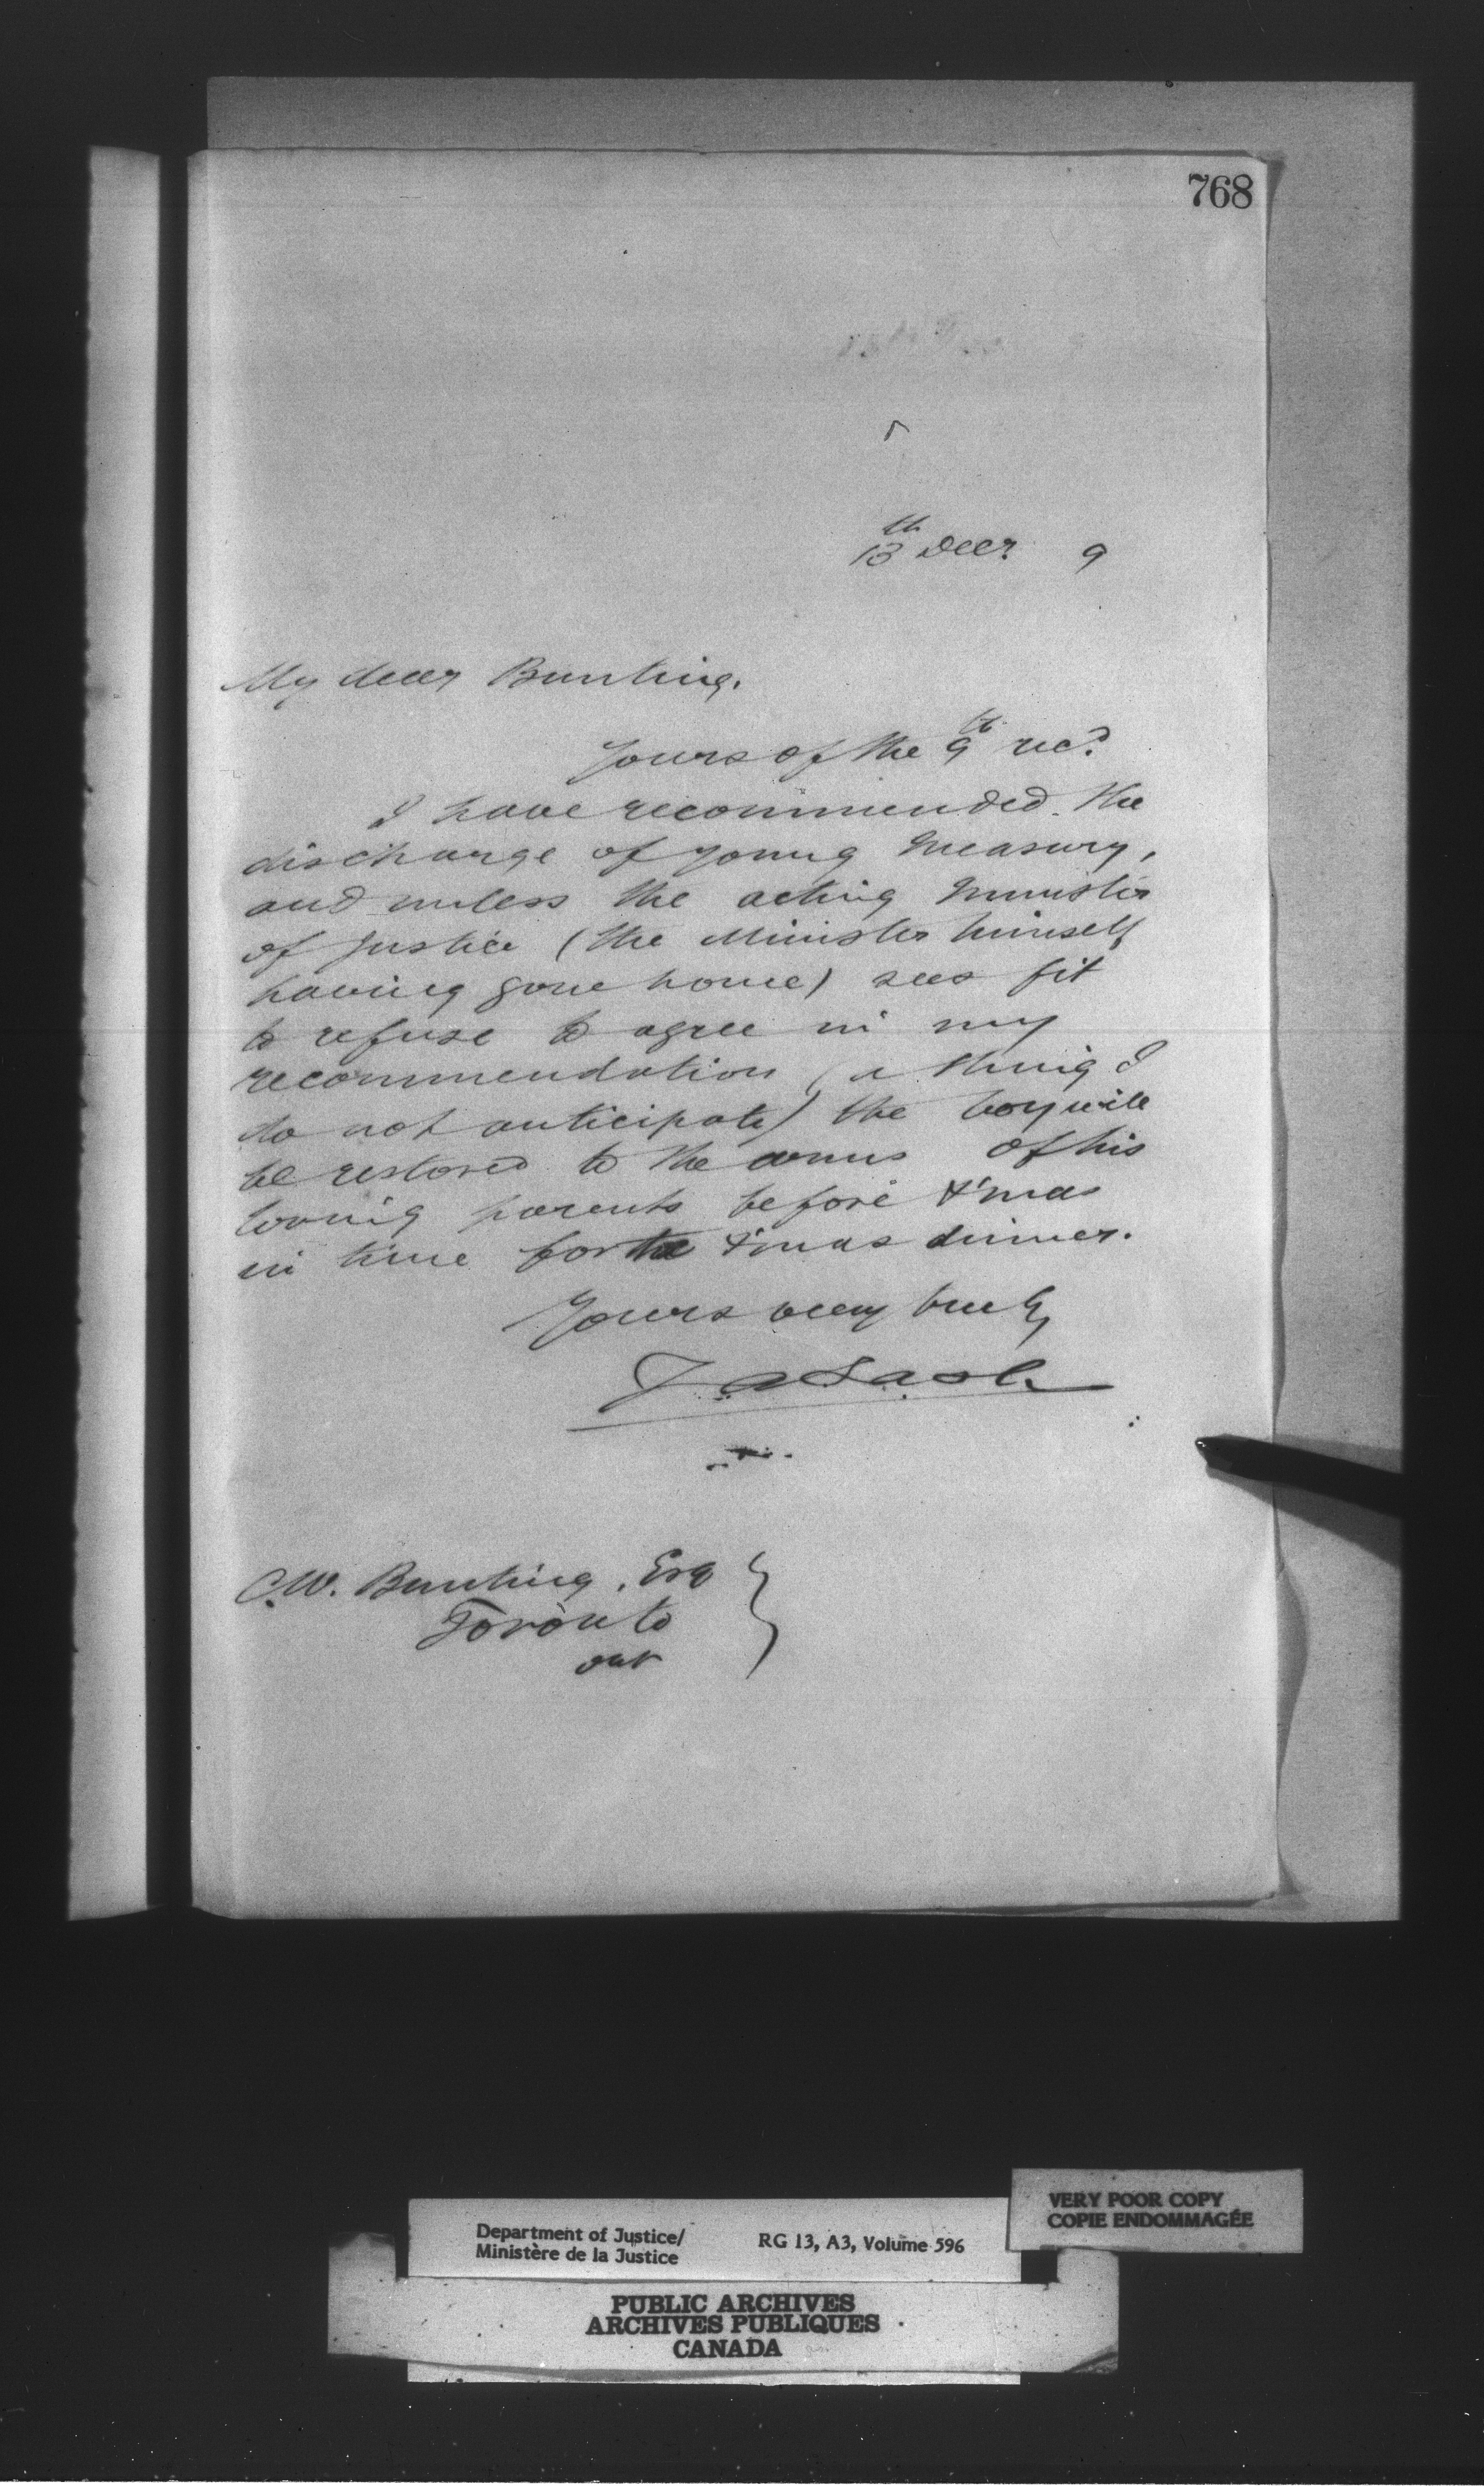 768
13th Decr 9
My dear Bunting.
Yours of the 9th recd.
I have recommended the
discharge of young Measury,
and unless the acting Minister
of Justice (the Minister himself
having gone home) sees fit
to refuse to agree in my
recommendation (a thing I
do not anticipate) the boy will
be restored to the arms of his
loving parents before X'mas
in time for the X'mas dinner.
Yours very truly
Z A Lash
C.W. Bunting, Esq
Toronto
Ont
Department of Justice/
Ministère de la Justice
RG 13, A3, Volume 596
VERY POOR COPY
COPIE ENDOMMAGÉE
PUBLIC ARCHIVES
ARCHIVES PUBLIQUES
CANADA